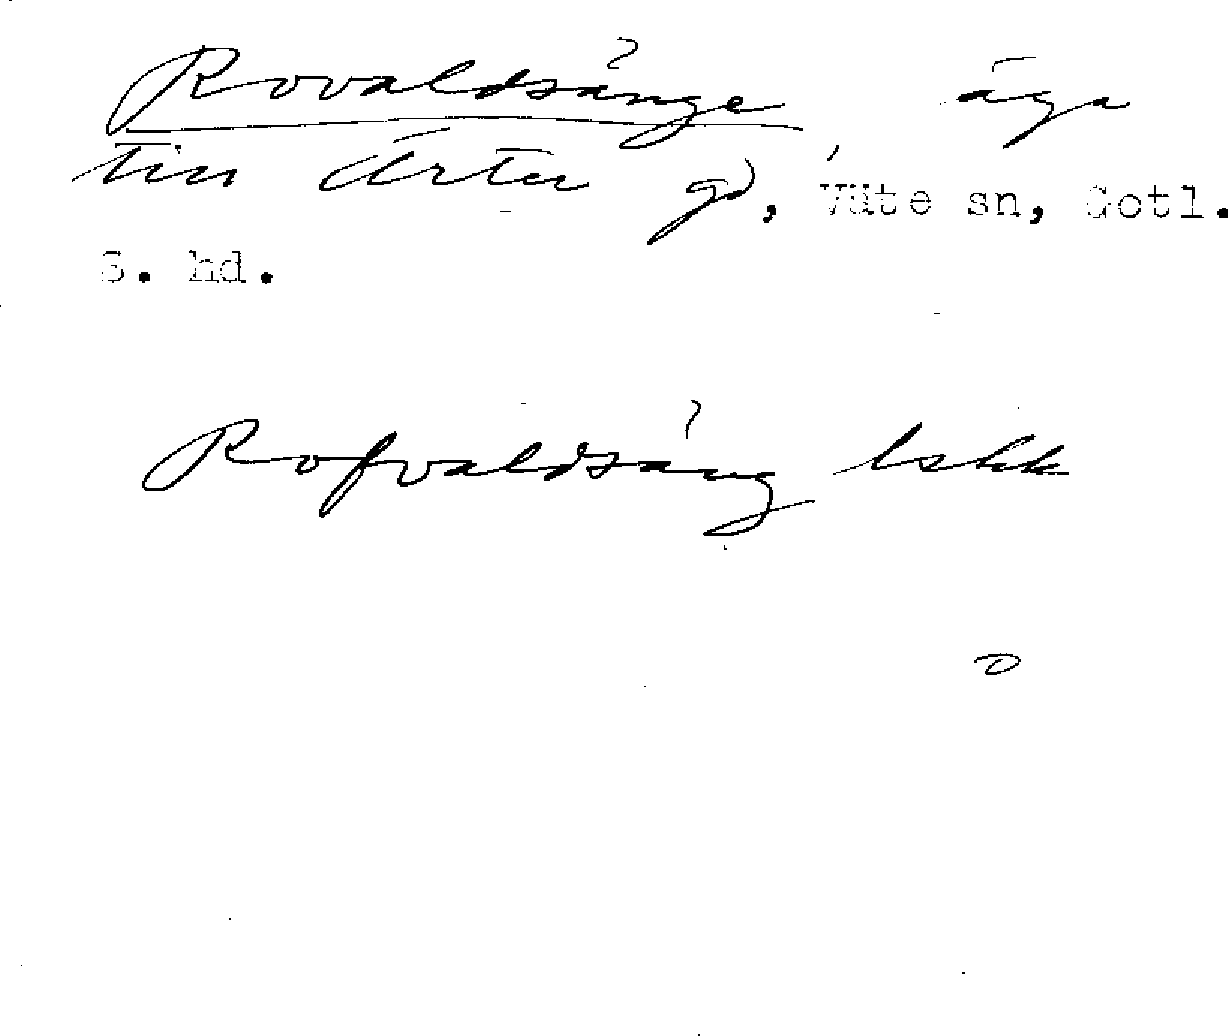 Rovaldsänge, äga
till Ärter gd, Väte sn, Gotl.
S. hd.
Rofvaldsäng lskk